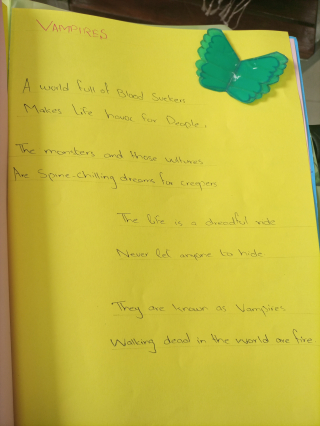 VAMPIRES
A world full of Blood Suckers
Makes life havoc for People.
The monsters and those vultures
Are Spine-chilling dreams for creepers
The life is a dreadful ride
Never let anyone to hide
They are known as Vampires
Walking dead in the world are fire